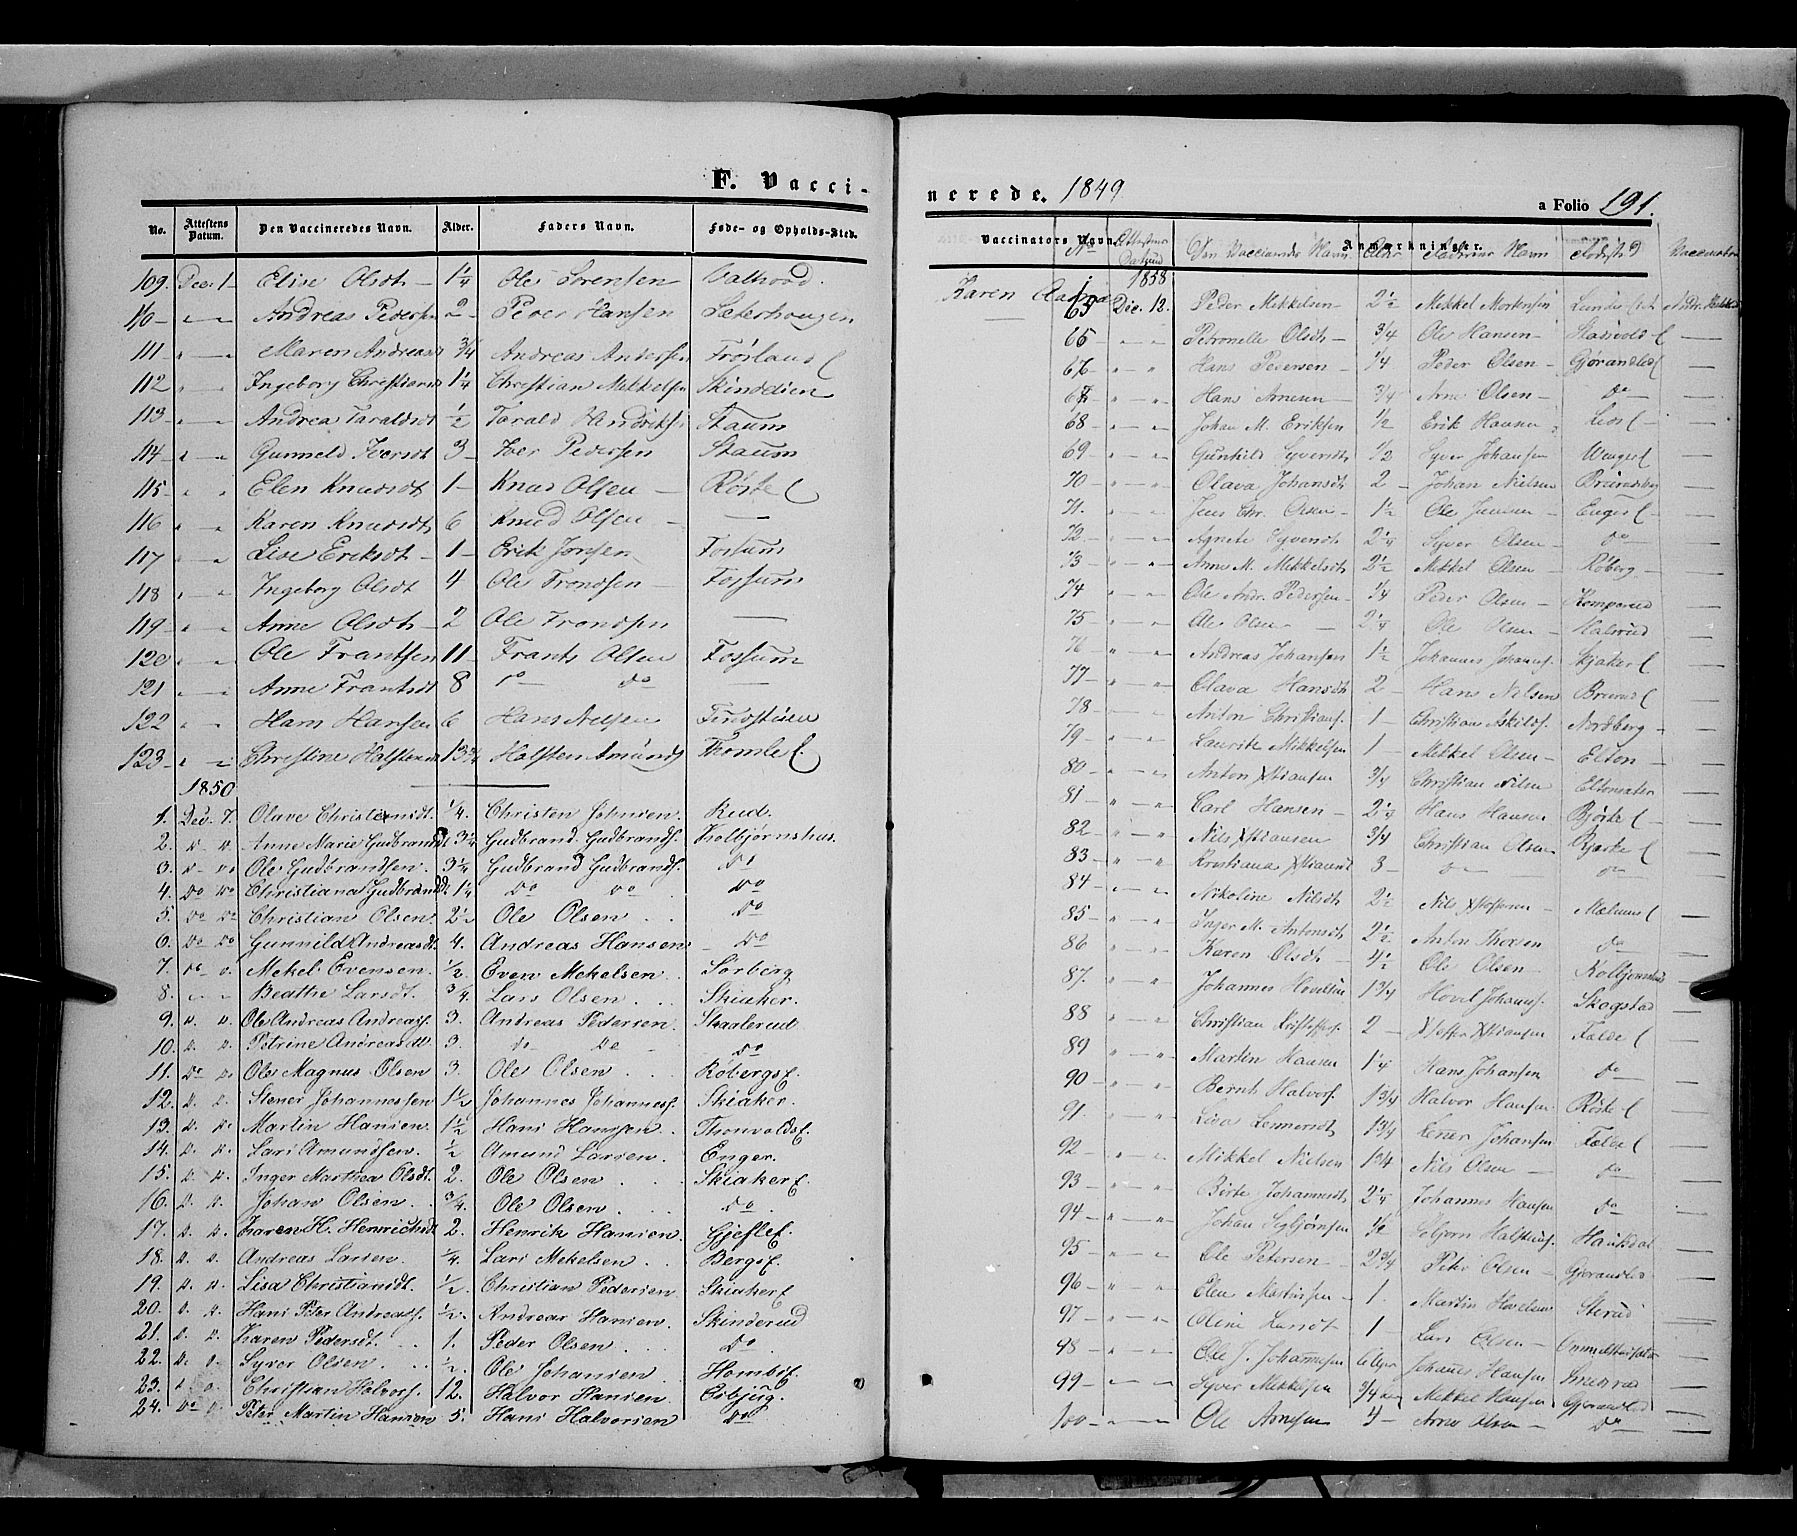 F. Vacci-
No. Attestens Datum. Den Vaccineredes Navn. Alder. Faders Navn. Føde- og Opholds-Sted.
109. Dec. 1 Elise Olsdt 1 1/4 Ole Sørensen
110 " — " Andreas Pedersen 2 Peder Hansen Sæterhougen
111 " — " Maren Andreasdt 3/4 Andreas Andersen
112 " — " Ingeborg Christiansdt 1 1/4 Christian Mikkelsen
113 " — " Andrea Taraldsdt 1/2 Tarald Staum
114 " — " Gunneld Iversdt 3 Iver Pedersen Staum
115 " " Elen Knudsdt 1 Knud Olsen Røste
116 " — " Karen Knudsdt 6 Knud Olsen —
117 " — " Lise Eriksdt 1 Erik Fossum
118 " — " Ingeborg Olsdt 4 Ole Trondsen Fossum
119 " — " Anne Olsdt 2 Ole Trondsen —
120 " — " Ole Frantsen 11 Frants Olsen Fossum
121 " — " Anne Frantsdt 8 do do —
122 " " Hans Hansen 6 Hans Nilsen
123 " " Christine Halstensdt 13 3/4 Halsten Amunds Thomle
1850
1. Dec. 7. Olave Christiansdt. 1/4. Christen Johnsen. Rud.
2. D. D. Anne Marie Gudbrandsdt 3 1/4 Gudbrand Gudbrands. Kolbjørnshus.
3. D. Do Ole Gudbrandsen. 3 1/4 Gudbrand Gudbrands. Do
4. Do Do Christiana Gudbrandsd. 1 1/4 Do Do Do
5. Do Do Christian Olsen. 2 1/2 Ole Olsen. Do
6. Do Do Gunnild Andreasdt. 4. Andreas Hansen. Do
7. Do D. Mekel Evensen. 1/2 Even Mekelsen. Sørberg
8. " " Beathe Larsdt. 3/4. Lars Olsen. Skiaker.
9. D. D. Ole Andreas Andreass. 3. Andreas Pedersen. Skaalerud
10. D. D. Petrine Andreasdt. 3. Do Do Do
11. Do Do Ole Magnus Olsen 3. Ole Olsen. Robergs.
12. D. D. Stener Johannessen 1 1/2 Johannes Johanness. Skiaker.
13. D. Do Martin Hansen. 1 1/2 Hans Hanssen. Thorvolds.
14. D. D. Lars Amundsen. 1/2 Amund Larsen. Enger.
15. D. D. Inger Marthea Olsdt. 2. Ole Olsen. Skiaker.
16. D. D. Johan Olsen. 3/4. Ole Olsen. Do.
17. D. D. Karen H. Henrichsdt 2. Henrik Hansen. Gjefle.
18. D. D. Andreas Larsen. 1/4. Lars Mekelsen. Bergs.
19. D. D. Lisa Christiansdt. 1/2. Christian Pedersen. Skiaker
20. D. D. Hans Peter Andreass. 1/2. Andreas Hansen. Skinderud
21. D. D. Karen Pedersdt. 1. Peder Olsen. Do.
22. D. D. Syver Olsen. 1/2. Ole Johansen.
23. D. D. Christian Halvors. 12. Halvor Hansen. Esbjug.
24. Do D. Peter Martin Hansen 5. Hans Halvorsen Do
nerede. 1849
a Folio 191.
Vaccinators Navn. Anmærkninger.
No Attestens Datum Den Vaccineredes Navn Alder Faderens Navn Fødested Vaccinator
Karen Aa
1858
65 Dec. 12. Peder Mikkelsen 2 1/2 Mikkel Mortensen
66 " " Petronelle Olsdt 3/4 Ole Hansen —
67 " " Hans Pedersen 1/4 Peder Olsen Gjørandlie —
67 " " Hans Arnesen 3/4 Arne Olsen do —
68 " " Johan M. Eriksen 1/2 Erik Hansen Lios —
69 " " Gunhild Syversdt 1/2 Syver Johansen —
70 " " Olava Johansdt 2 Johan Nilsen —
71. " " Jens Chr. Olsen 1 1/2 Ole Jensen Enger —
72 " " Agnete Syversdt 2 1/4 Syver Olsen do —
73 " " Anne M. Mikkelsdt 2 1/2 Mikkel Olsen Røberg —
74 " " Ole Andr. Pedersen 1/4 Peder Olsen Komperud —
75 " " Ole Olsen 2 1/4 Ole Olsen Halsrud —
76 " " Andreas Johansen 1 1/2 Johannes Johanness. Skjaker —
77 " " Olava Hansdt 2 Hans Nilsen —
78 " " Anton Christians. 1 Christian Askilds. Nordberg —
79 " " Laurits Mikkelsen 1 Mikkel Olsen Elton —
80 " " Anton Xstiansen 3/4 Christian Nilsen Eltonsæter —
81 " " Carl Hansen 2 1/4 Hans Hansen Bjørke —
82 " " Nils Xstiansen 3/4 Christian Olsen Bjørke —
83 " " Kristiana Xstiansdt 3 do do —
84 " " Nikoline Nilsdt 2 1/2 Nils Xstofersen Mælum —
85 " " Inger M. Antonsdt 2 1/2 Anton Thorsen do —
86 " " Karen Olsdt 4 1/2 Ole Olsen Kolbjørnshus —
87. " " Johannes Hovelsen 1 3/4 Hovel Johanns. Skogstad —
88 " " Christian Kristoffers. 2 Xstoffer Xstiansen Falde —
89 " " Martin Hansen 1 1/4 Hans Johansen do —
90 " " Bernt Halvors. 1 3/4 Halvor Hansen Røste —
91 " " Lisa Lennersdt 1 3/4 Lener Johansen Falde —
92 " " Mikkel Nielsen 1 3/4 Nils Olsen do —
93 " " Birte Johannesdt 2 1/4 Johannes Hansen do —
94 " " Johan Sigbjørnsen 1/2 Haugsdal —
95 " " Ole Petersen 2 3/4 Peter Olsen Gjørandlie —
96 " " Elen 1 Martin Hovelsen Sterud —
97 " " Oline Larsdt 1 Lars Olsen —
98 " " Ole J. Johannesen Johannes Hansen —
99 " " Syver Mikkelsen 3/4 Mikkel Hansen Gjørandlie —
100 " " Ole Arnesen 4 Arne Olsen Do —